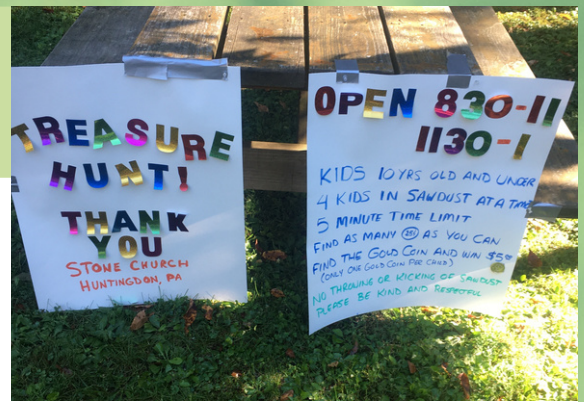 TREASURE
HUNT!
THANK
YOU
STONE CHURCH
HUNTINGDON, PA
OPEN 830-11
1130-1
KIDS 10 YRS OLD AND UNDER
4 KIDS IN SAWDUST AT A TIME
5 MINUTE TIME LIMIT
FIND AS MANY 25¢ AS YOU CAN
FIND THE GOLD COIN AND WIN $5.00
(ONLY ONE GOLD COIN PER CHILD)
NO THROWING OR KICKING OF SAWDUST
PLEASE BE KIND AND RESPECTFUL